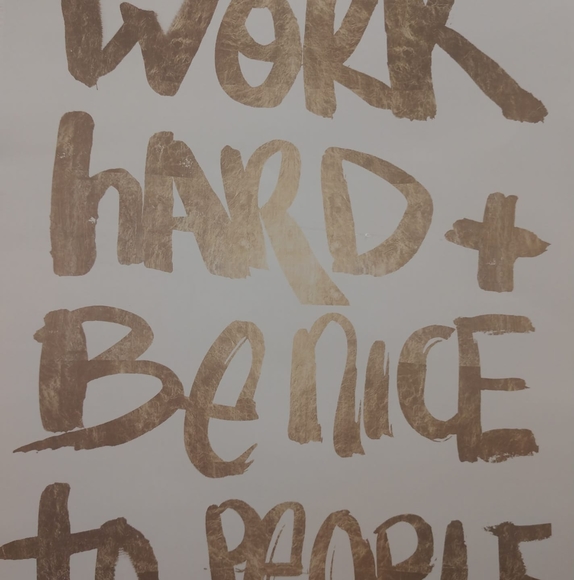 WORK
hARD +
BeNICE
to PEOPLE